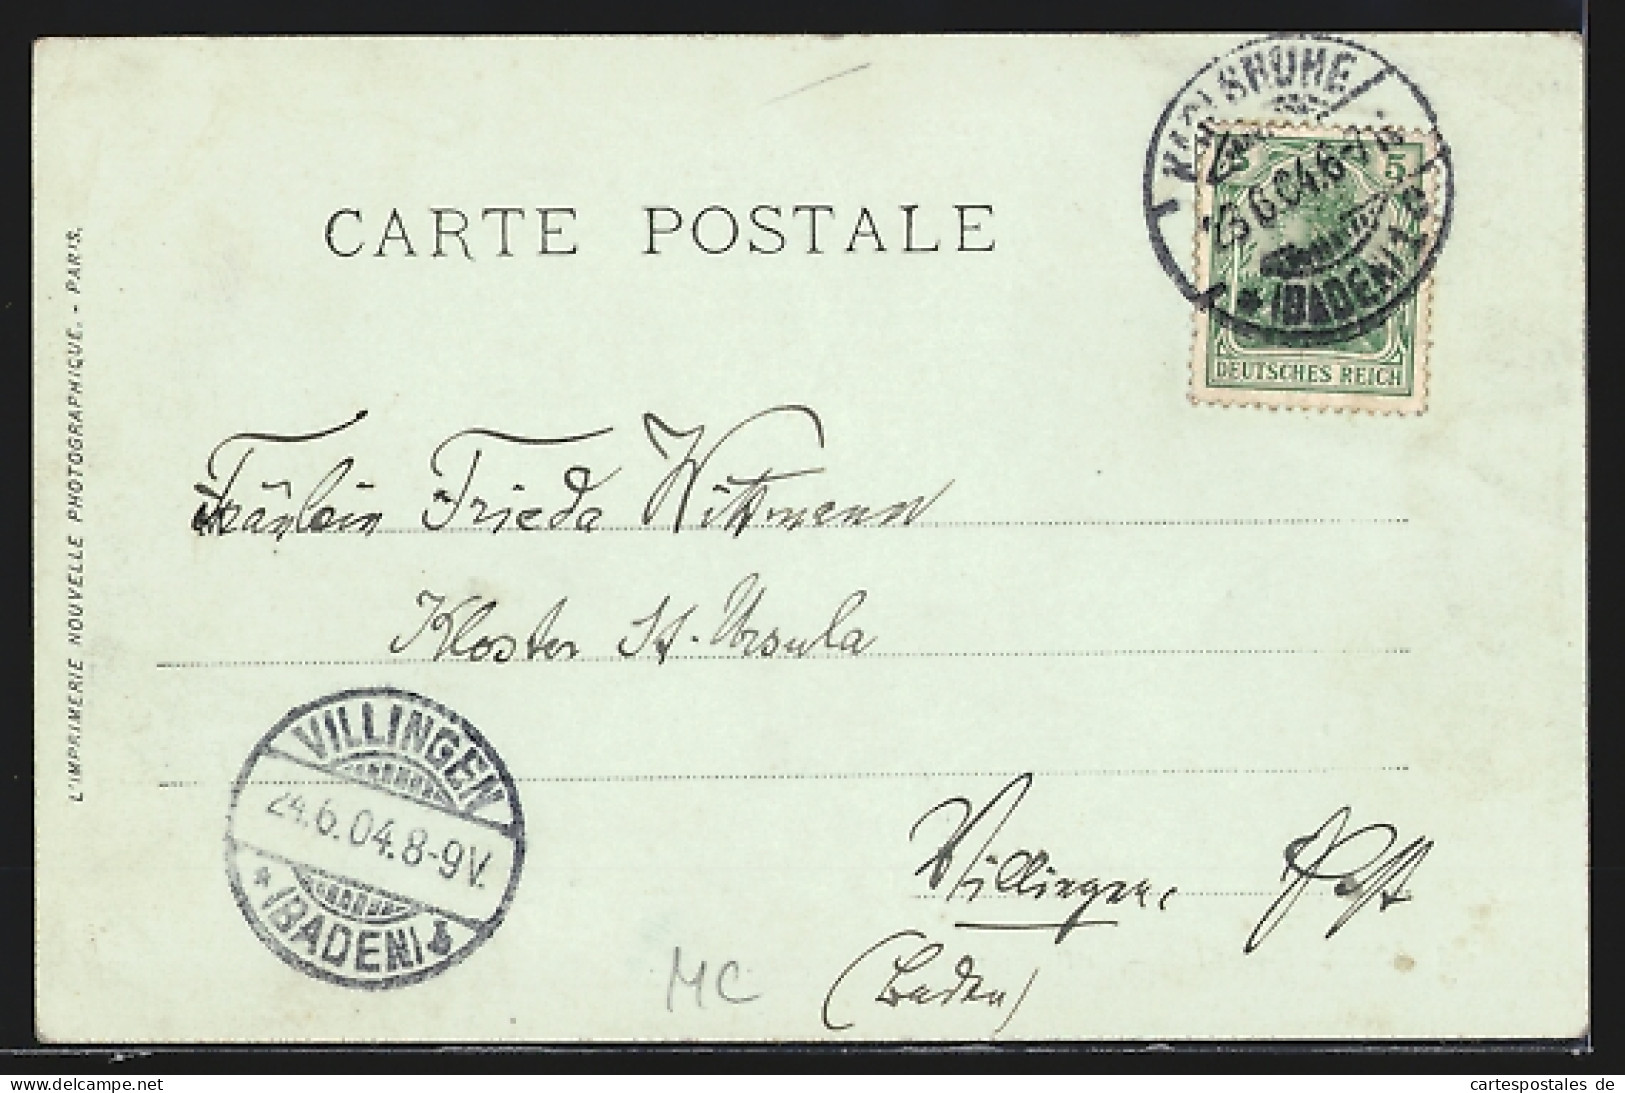 CARTE POSTALE
L'IMPRIMERIE NOUVELLE PHOTOGRAPHIQUE. - PARIS.
KARLSRUHE
23.6.04.6-7
(BADEN) 1
5 5
DEUTSCHES REICH
Fräulein Frieda Wittmann
Kloster St. Ursula
VILLINGEN
24.6.04.8-9V.
* (BADEN)
Villingen.
(Baden)
MC
cartespostales.de